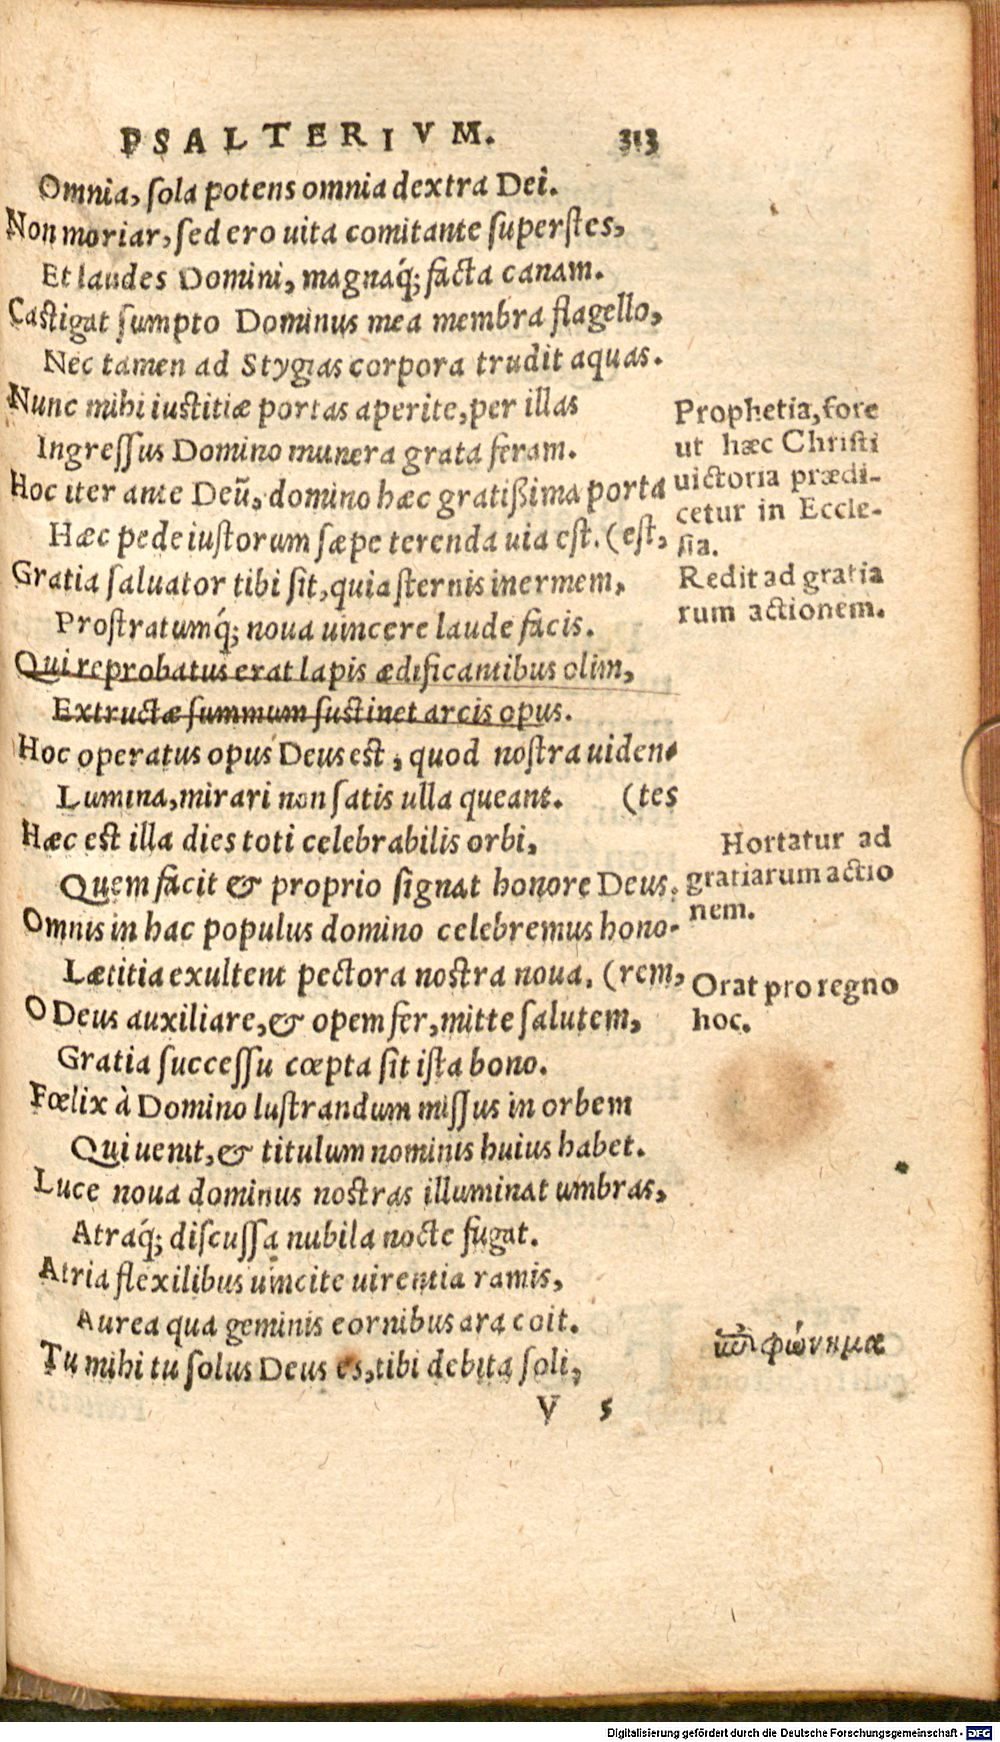 PSALTERIVM. 313
Omnia, sola potens omnia dextra Dei.
Non moriar, sed ero uita comitante superstes,
Et laudes Domini, magnaq́; facta canam.
Castigat sumpto Dominus mea membra flagello,
Nec tamen ad Stygias corpora trudit aquas.
Nunc mihi iustitiæ portas aperite, per illas
Ingressus Domino munera grata feram.
Hoc iter ante Deũ, domino hæc gratißima porta
Hæc pede iustorum sæpe terenda uia est. (est,
Gratia saluator tibi sit, quia sternis inermem,
Prostratumq́; noua uincere laude facis.
Qui reprobatus erat lapis ædificantibus olim,
Extructæ summum sustinet arcis opus.
Hoc operatus opus Deus est, quod nostra uiden-
Lumina, mirari non satis ulla queant. (tes
Hæc est illa dies toti celebrabilis orbi,
Quem facit & proprio signat honore Deus.
Omnis in hac populus domino celebremus hono-
Lætitia exultent pectora nostra noua. (rem,
O Deus auxiliare, & opem fer, mitte salutem,
Gratia successu cœpta sit ista bono.
Fœlix à Domino lustrandum missus in orbem
Qui uenit, & titulum nominis huius habet.
Luce noua dominus nostras illuminat umbras,
Atraq́; discussa nubila nocte fugat.
Atria flexilibus uincite uirentia ramis,
Aurea qua geminis cornibus ara coit.
Tu mihi tu solus Deus es, tibi debita soli,
V 5
Prophetia, fore
ut hæc Christi
uictoria prædi-
cetur in Eccle-
sia.
Redit ad gratia
rum actionem.
Hortatur ad
gratiarum actio
nem.
Orat pro regno
hoc.
φώνημα
Digitalisierung gefördert durch die Deutsche Forschungsgemeinschaft - DFG